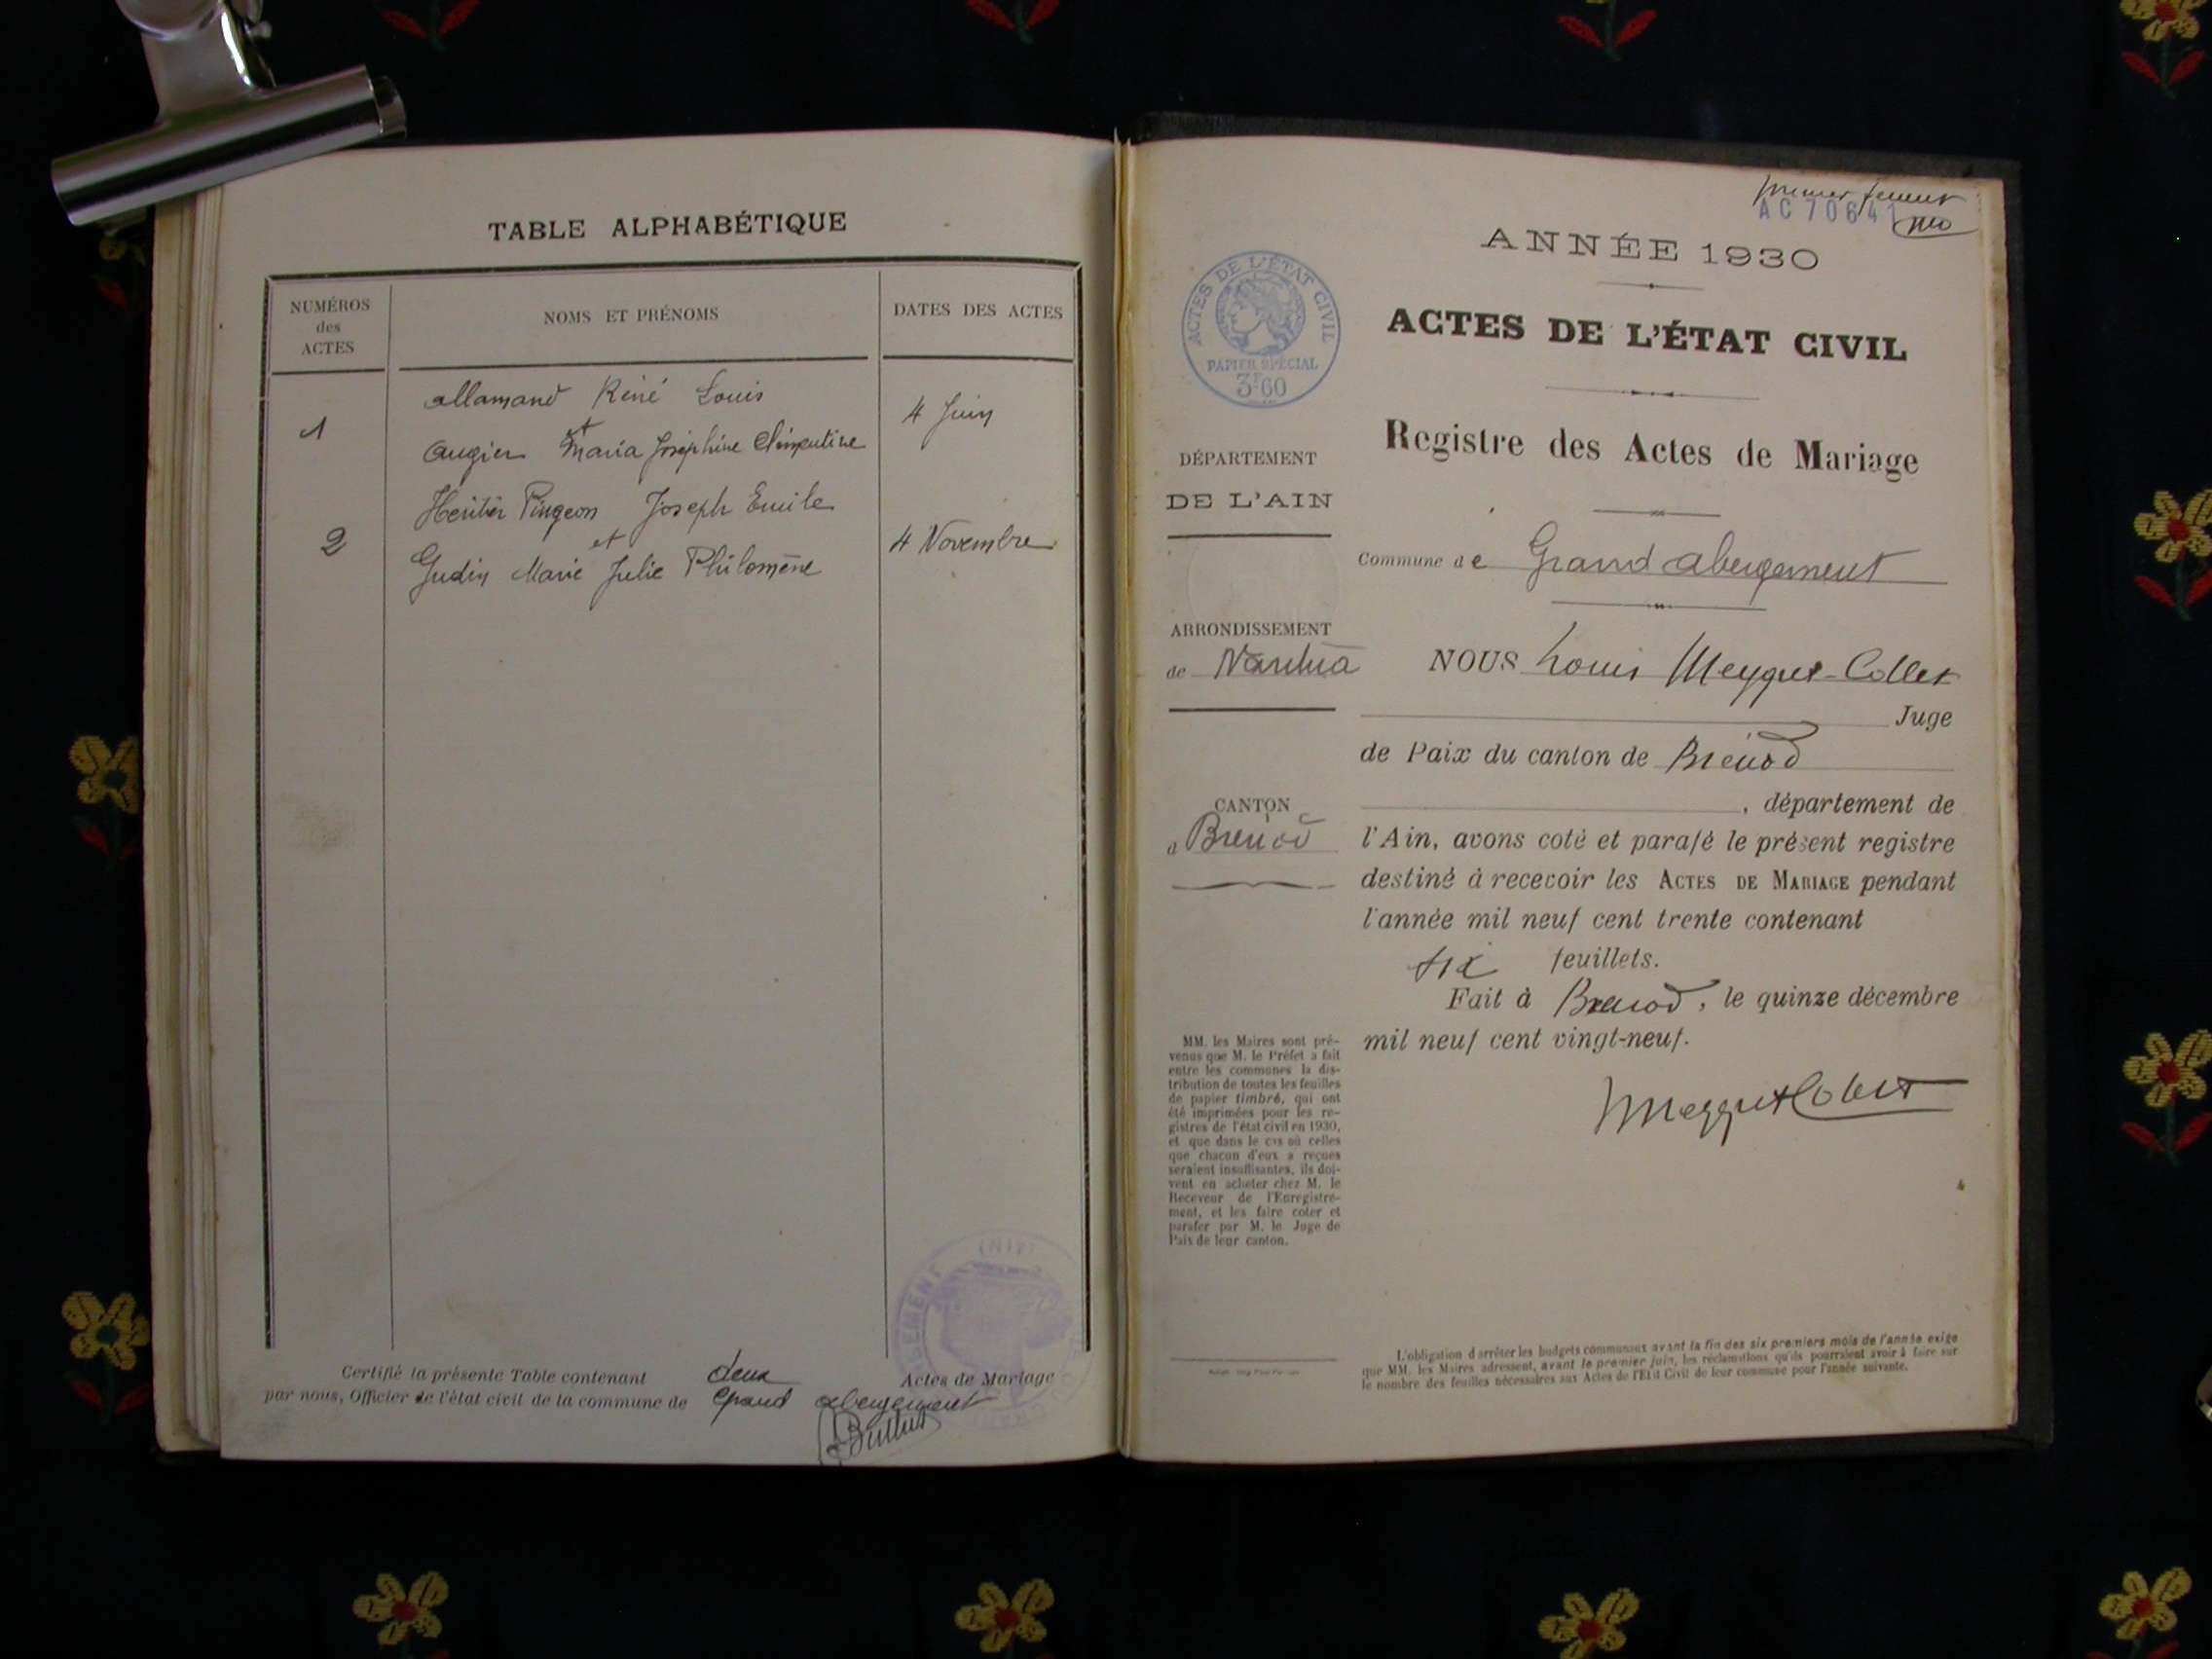 TABLE ALPHABÉTIQUE
NUMÉROS
des
ACTES
NOMS ET PRÉNOMS
DATES DES ACTES
1
allamand Réné Louis
et
augier Maria Joséphine Clémentine
4 Juin
2
Héritier Pingeon Joseph Emile
et
Gudin Marie Julie Philomène
4 Novembre
Certifié la présente Table contenant deux Actes de Mariage
par nous, Officier de l'état civil de la commune de Grand abergement
premier feuillet
AC 70641
ANNÉE 1930
ACTES DE L'ÉTAT CIVIL
PAPIER SPÉCIAL
3F60
ACTES DE L'ÉTAT CIVIL
Registre des Actes de Mariage
DÉPARTEMENT
DE L'AIN
Commune de Grand abergement
ARRONDISSEMENT
de Nantua
NOUS Louis Meygret-Collet
Juge
de Paix du canton de Brénod
, département de
CANTON
d Brenod
l'Ain, avons coté et parafé le présent registre
destiné à recevoir les ACTES DE MARIAGE pendant
l'année mil neuf cent trente contenant
six feuillets.
Fait à Brenod, le quinze décembre
mil neuf cent vingt-neuf.
MM. les Maires sont pré-
venus que M. le Préfet a fait
entre les communes la dis-
tribution de toutes les feuilles
de papier timbré, qui ont
été imprimées pour les re-
gistres de l'état civil en 1930,
et que dans le cas où celles
que chacun d'eux a reçues
seraient insuffisantes, ils doi-
vent en acheter chez M. le
Receveur de l'Enregistre-
ment, et les faire coter et
parafer par M. le Juge de
Paix de leur canton.
L'obligation d'arrêter les budgets communaux avant la fin des six premiers mois de l'année exige
que MM. les Maires adressent, avant le premier juin, les réclamations qu'ils pourraient avoir à faire sur
le nombre des feuilles nécessaires aux Actes de l'Etat Civil de leur commune pour l'année suivante.